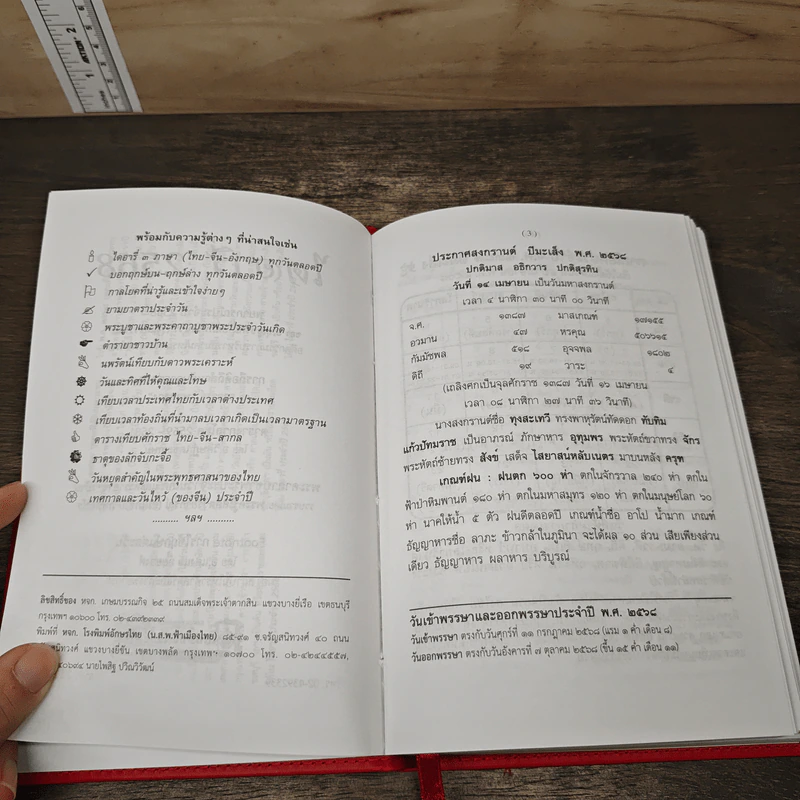 พร้อมกับความรู้ต่างๆ ที่น่าสนใจเช่น
ไดอารี่ ๓ ภาษา (ไทย-จีน-อังกฤษ) ทุกวันตลอดปี
บอกฤกษ์บน-ฤกษ์ล่าง ทุกวันตลอดปี
กาลโยคที่น่ารู้และเข้าใจง่ายๆ
ยามยาตราประจำวัน
พระบูชาและพระคาถาบูชาพระประจำวันเกิด
ตำรายาชาวบ้าน
นพรัตน์เทียบกับดาวพระเคราะห์
วันและทิศที่ให้คุณและโทษ
เทียบเวลาประเทศไทยกับเวลาต่างประเทศ
เทียบเวลาท้องถิ่นที่นำมาลบเวลาเกิดเป็นเวลามาตรฐาน
ตารางเทียบศักราช ไทย-จีน-สากล
ธาตุของลักจับกะจื้อ
วันหยุดสำคัญในพระพุทธศาสนาของไทย
เทศกาลและวันไหว้ (ของจีน) ประจำปี
.......... ฯลฯ ..........
ลิขสิทธิ์ของ หจก. เกษมบรรณกิจ ๒๕ ถนนสมเด็จพระเจ้าตากสิน แขวงบางยี่เรือ เขตธนบุรี
กรุงเทพฯ ๑๐๖๐๐ โทร. ๐๒-๔๓๙๒๓๓๙
พิมพ์ที่ หจก. โรงพิมพ์อักษรไทย (น.ส.พ.ฟ้าเมืองไทย) ๘๕-๙๑ ซ.จรัญสนิทวงศ์ ๔๐ ถนน
สนิทวงศ์ แขวงบางยี่ขัน เขตบางพลัด กรุงเทพฯ ๑๐๗๐๐ โทร. ๐๒-๔๒๔๔๕๕๗,
๔๐๖๙๔ นายไพสิฐ ปวิณวิวัฒน์
(3)
ประกาศสงกรานต์ ปีมะเส็ง พ.ศ. ๒๕๖๘
ปกติมาส อธิกวาร ปกติสุรทิน
วันที่ ๑๔ เมษายน เป็นวันมหาสงกรานต์
เวลา ๔ นาฬิกา ๓๐ นาที ๐๐ วินาที
จ.ศ. ๑๓๘๗ มาสเกณฑ์ ๑๗๑๕๕
อวมาน ๔๗ หรคุณ ๕๐๖๖๑๕
กัมมัชพล ๕๑๘ อุจจพล ๑๘๐๒
ดิถี ๑๙ วาระ ๔
(เถลิงศกเป็นจุลศักราช ๑๓๘๗ วันที่ ๑๖ เมษายน
เวลา ๐๘ นาฬิกา ๒๗ นาที ๓๖ วินาที)
นางสงกรานต์ชื่อ ทุงสะเทวี ทรงพาหุรัดทัดดอก ทับทิม
แก้วปัทมราช เป็นอาภรณ์ ภักษาหาร อุทุมพร พระหัตถ์ขวาทรง จักร
พระหัตถ์ซ้ายทรง สังข์ เสด็จ ไสยาสน์หลับเนตร มาบนหลัง ครุฑ
เกณฑ์ฝน : ฝนตก ๖๐๐ ห่า ตกในจักรวาล ๒๔๐ ห่า ตกใน
ฟ้าป่าหิมพานต์ ๑๘๐ ห่า ตกในมหาสมุทร ๑๒๐ ห่า ตกในมนุษย์โลก ๖๐
ห่า นาคให้น้ำ ๕ ตัว ฝนดีตลอดปี เกณฑ์น้ำชื่อ อาโป น้ำมาก เกณฑ์
ธัญญาหารชื่อ ลาภะ ข้าวกล้าในภูมินา จะได้ผล ๑๐ ส่วน เสียเพียงส่วน
เดียว ธัญญาหาร ผลาหาร บริบูรณ์
วันเข้าพรรษาและออกพรรษาประจำปี พ.ศ. ๒๕๖๘
วันเข้าพรรษา ตรงกับวันศุกร์ที่ ๑๑ กรกฎาคม ๒๕๖๘ (แรม ๑ ค่ำ เดือน ๘)
วันออกพรรษา ตรงกับวันอังคารที่ ๗ ตุลาคม ๒๕๖๘ (ขึ้น ๑๕ ค่ำ เดือน ๑๑)